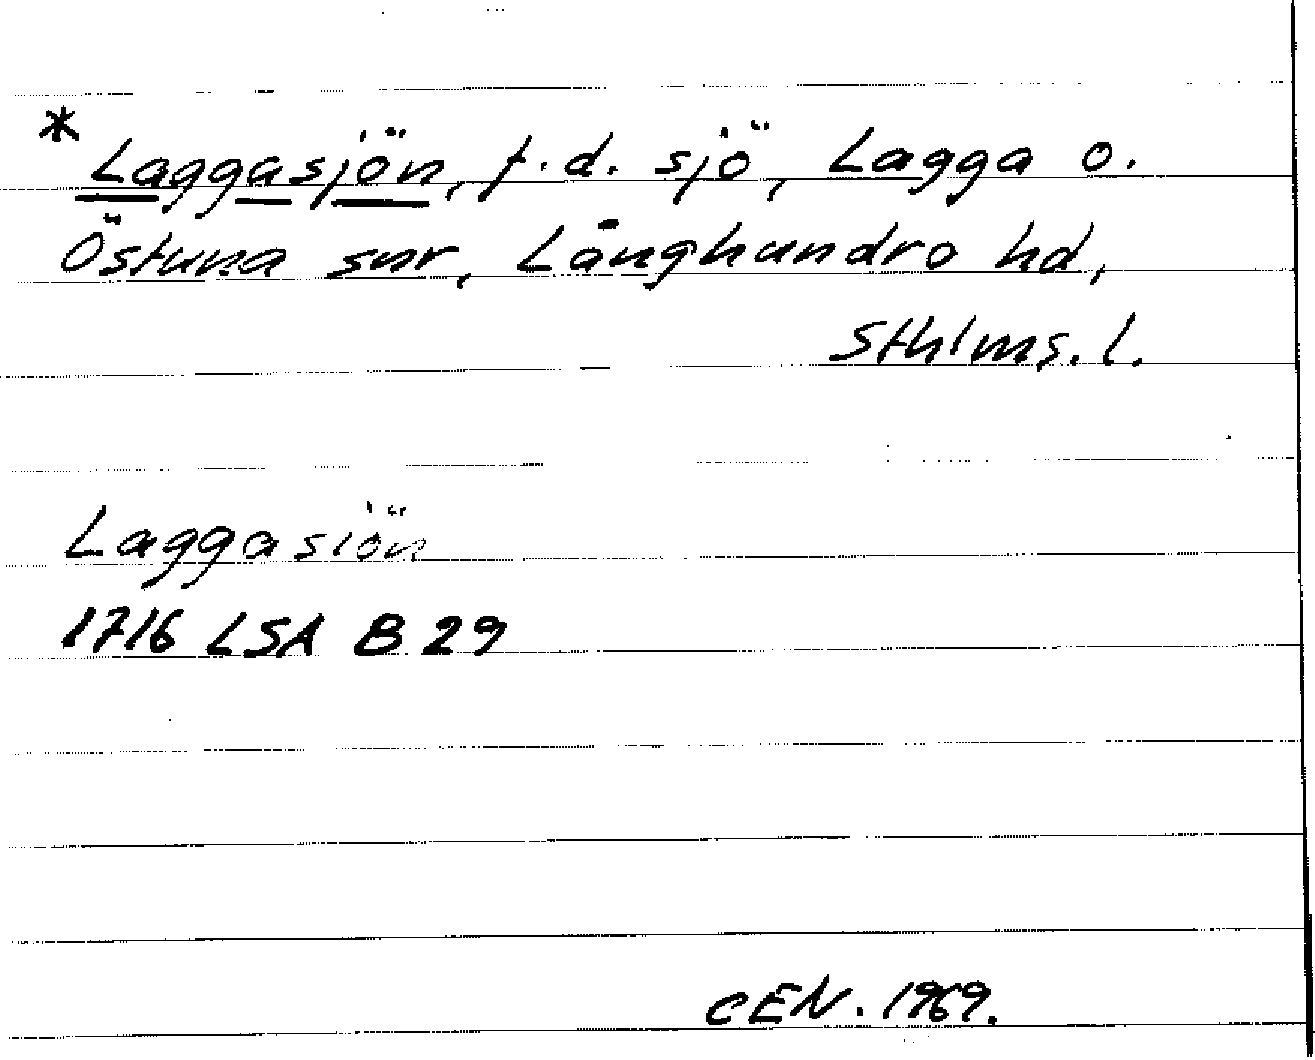 * Laggasjön, f.d. sjö, Lagga o.
Östuna snr, Långhundra hd,
Sthlms. l.
Laggasiön
1716 LSA B 29
CEN. 1969.